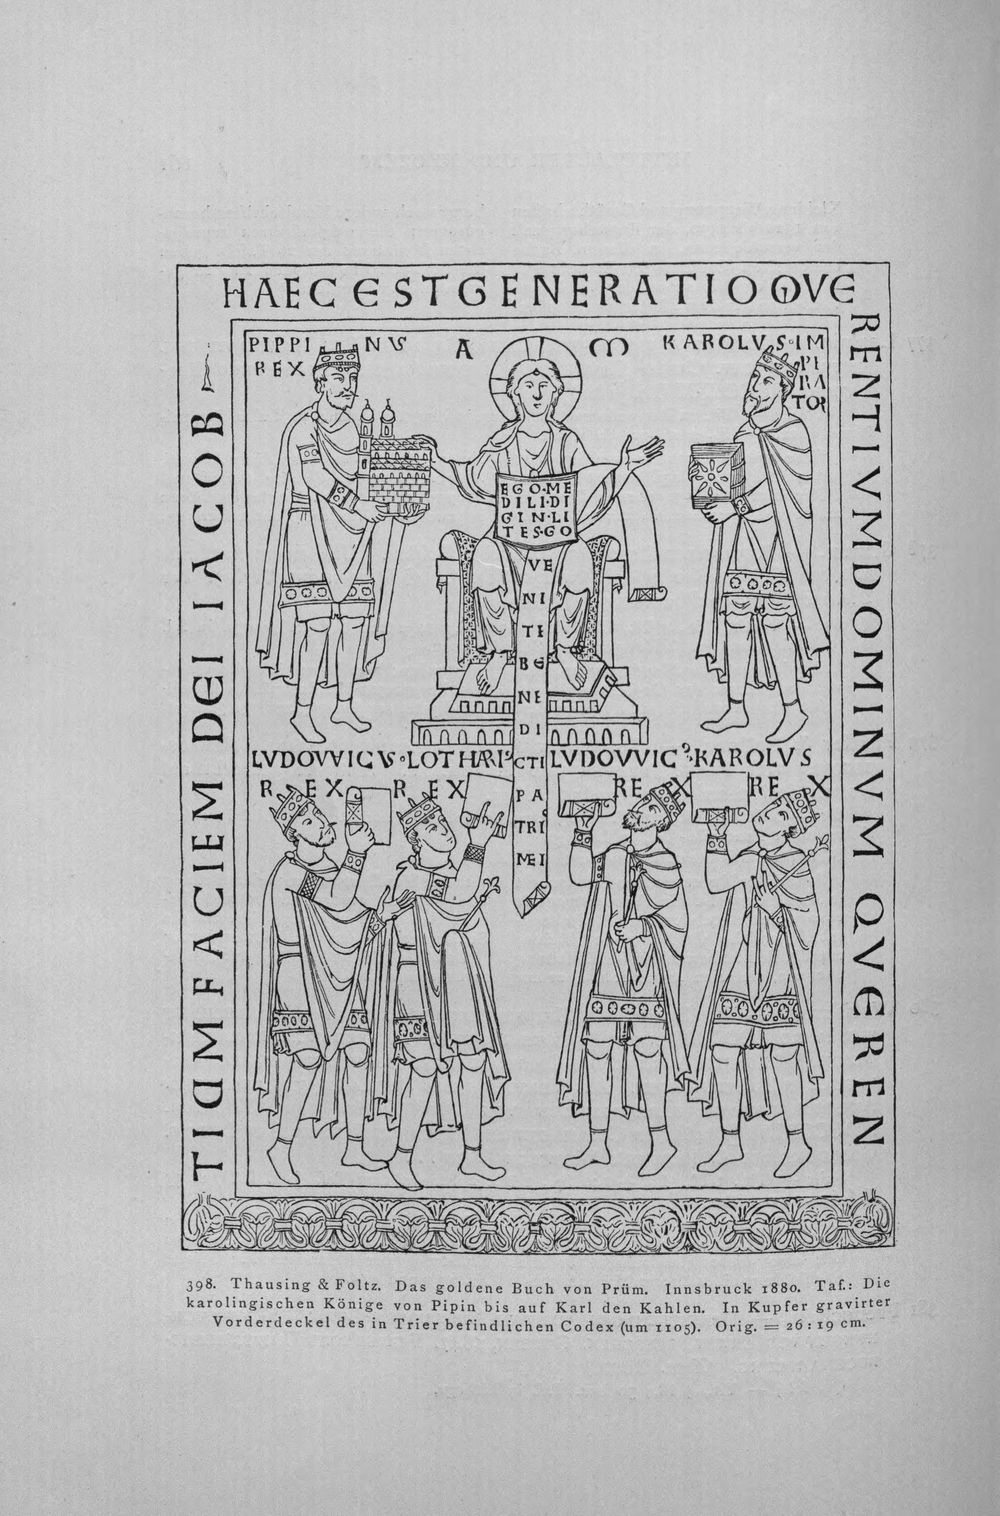 HAEC EST GENERATIO QVE
RENTIVM DOMINVM QVEREN
TIUM FACIEM DEI IACOB
PIPPINVS
REX
A
KAROLVS·IM
PE
RA
TOR
EGO·ME
DILI·DI
GIN·LI
TES·GO
VE
NI
TE
BE
NE
DI
CTI
PA
TRI
MEI
LVDOVVICVS·LOTHARI
REX REX
LVDOVVIC·KAROLVS
REX REX
398. Thausing & Foltz. Das goldene Buch von Prüm. Innsbruck 1880. Taf.: Die
karolingischen Könige von Pipin bis auf Karl den Kahlen. In Kupfer gravirter
Vorderdeckel des in Trier befindlichen Codex (um 1105). Orig. = 26 : 19 cm.